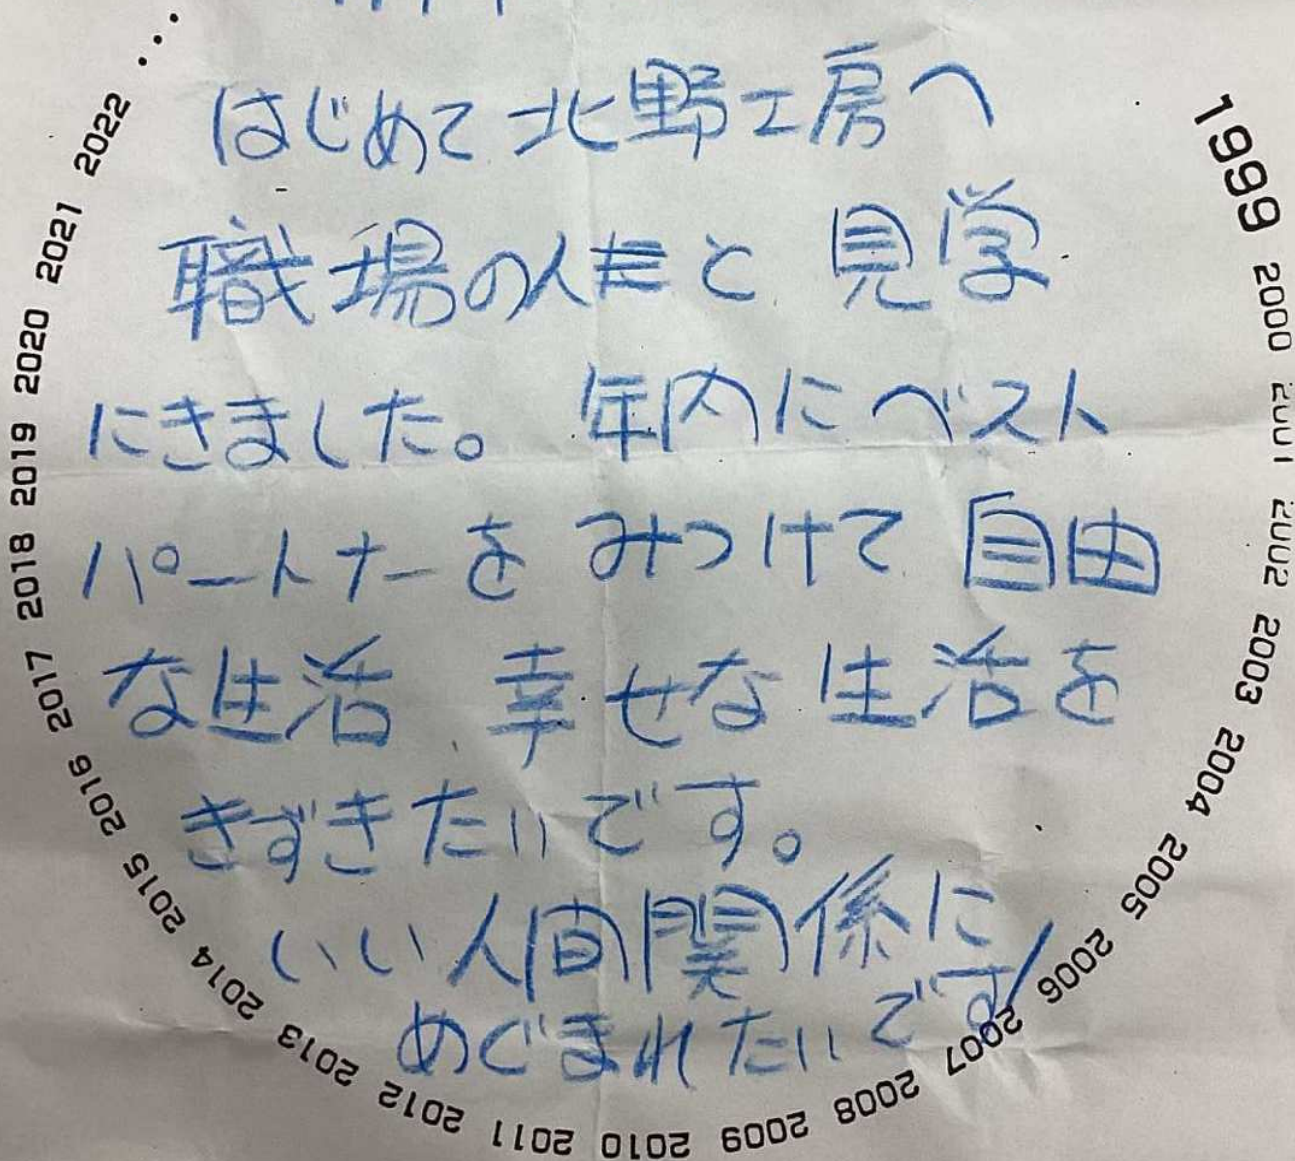 はじめて北野工房へ
職場の人と 見学
にきました。 年内にベスト
パートナーを みつけて 自由
な生活 幸せな生活を
きずきたいです。
いい人間関係に
めぐまれたいです
1999 2000 2001 2002 2003 2004 2005 2006 2007 2008 2009 2010 2011 2012 2013 2014 2015 2016 2017 2018 2019 2020 2021 2022 ...